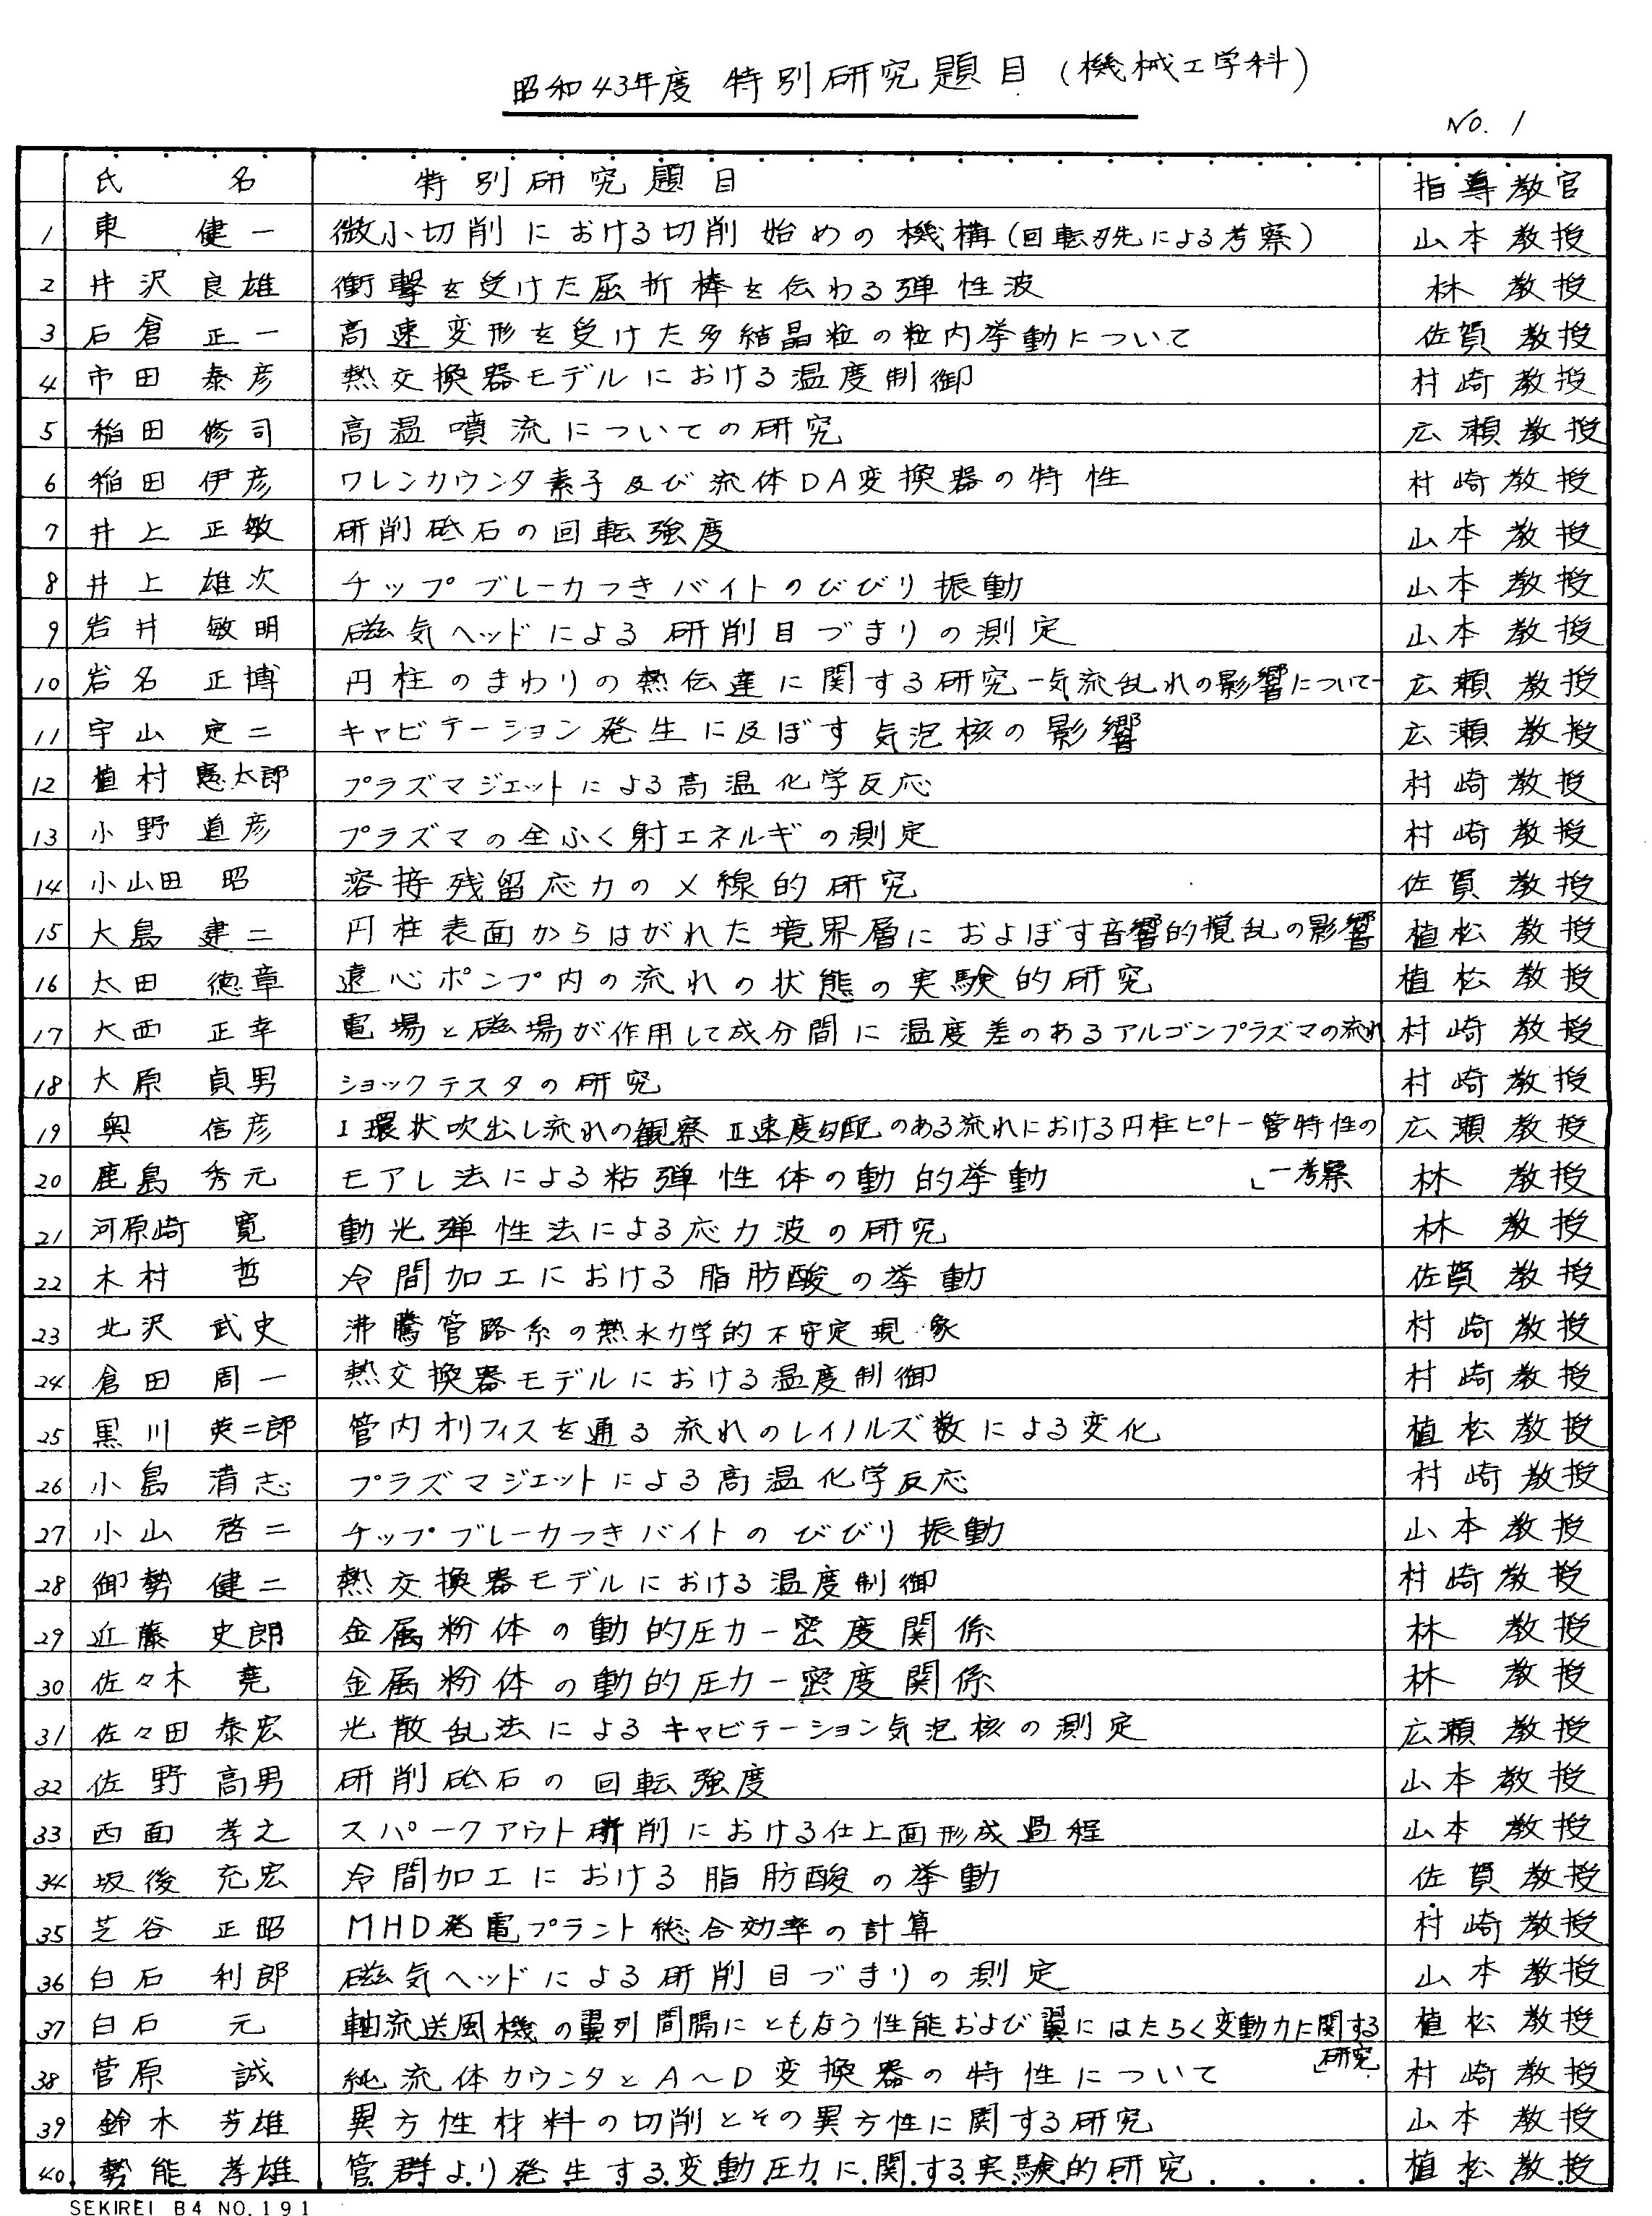 昭和43年度 特別研究題目 (機械工学科)
NO. 1
氏 名 特別研究題目 指導教官
1 東 健一 微小切削における切削始めの機構(回転刃先による考察) 山本教授
2 井沢良雄 衝撃を受けた屈折棒を伝わる弾性波 林 教授
3 石倉正一 高速変形を受けた多結晶粒の粒内挙動について 佐賀教授
4 市田泰彦 熱交換器モデルにおける温度制御 村崎教授
5 稲田修司 高温噴流についての研究 広瀬教授
6 稲田伊彦 ワレンカウンタ素子及び流体DA変換器の特性 村崎教授
7 井上正敏 研削砥石の回転強度 山本教授
8 井上雄次 チップブレーカつきバイトのびびり振動 山本教授
9 岩井敏明 磁気ヘッドによる研削目づまりの測定 山本教授
10 岩名正博 円柱のまわりの熱伝達に関する研究ー気流乱れの影響についてー 広瀬教授
11 宇山定二 キャビテーション発生に及ぼす気泡核の影響 広瀬教授
12 植村憲太郎 プラズマジェットによる高温化学反応 村崎教授
13 小野道彦 プラズマの全ふく射エネルギの測定 村崎教授
14 小山田 昭 溶接残留応力のX線的研究 佐賀教授
15 大島建二 円柱表面からはがれた境界層におよぼす音響的撹乱の影響 植松教授
16 太田徳章 遠心ポンプ内の流れの状態の実験的研究 植松教授
17 大西正幸 電場と磁場が作用して成分間に温度差のあるアルゴンプラズマの流れ 村崎教授
18 大原貞男 ショックテスタの研究 村崎教授
19 奥 信彦 I 環状吹出し流れの観察 II 速度勾配のある流れにおける円柱ピトー管特性の 広瀬教授
20 鹿島秀元 モアレ法による粘弾性体の動的挙動 一考察 林 教授
21 河原崎 寛 動光弾性法による応力波の研究 林 教授
22 木村 哲 冷間加工における脂肪酸の挙動 佐賀教授
23 北沢武史 沸騰管路系の熱水力学的不安定現象 村崎教授
24 倉田周一 熱交換器モデルにおける温度制御 村崎教授
25 黒川英二郎 管内オリフィスを通る流れのレイノルズ数による変化 植松教授
26 小島清志 プラズマジェットによる高温化学反応 村崎教授
27 小山啓二 チップブレーカつきバイトのびびり振動 山本教授
28 御勢健二 熱交換器モデルにおける温度制御 村崎教授
29 近藤史郎 金属粉体の動的圧力ー密度関係 林 教授
30 佐々木 尭 金属粉体の動的圧力ー密度関係 林 教授
31 佐々田泰宏 光散乱法によるキャビテーション気泡核の測定 広瀬教授
32 佐野高男 研削砥石の回転強度 山本教授
33 西面孝之 スパークアウト研削における仕上面形成過程 山本教授
34 坂後充宏 冷間加工における脂肪酸の挙動 佐賀教授
35 芝谷正昭 MHD発電プラント総合効率の計算 村崎教授
36 白石利郎 磁気ヘッドによる研削目づまりの測定 山本教授
37 白石 元 軸流送風機の翼列間隔にともなう性能および翼にはたらく変動力に関する 植松教授
研究
38 菅原 誠 純流体カウンタとA〜D変換器の特性について 村崎教授
39 鈴木芳雄 異方性材料の切削とその異方性に関する研究 山本教授
40 勢能孝雄 管群より発生する変動圧力に関する実験的研究 植松教授
SEKIREI B4 NO.191